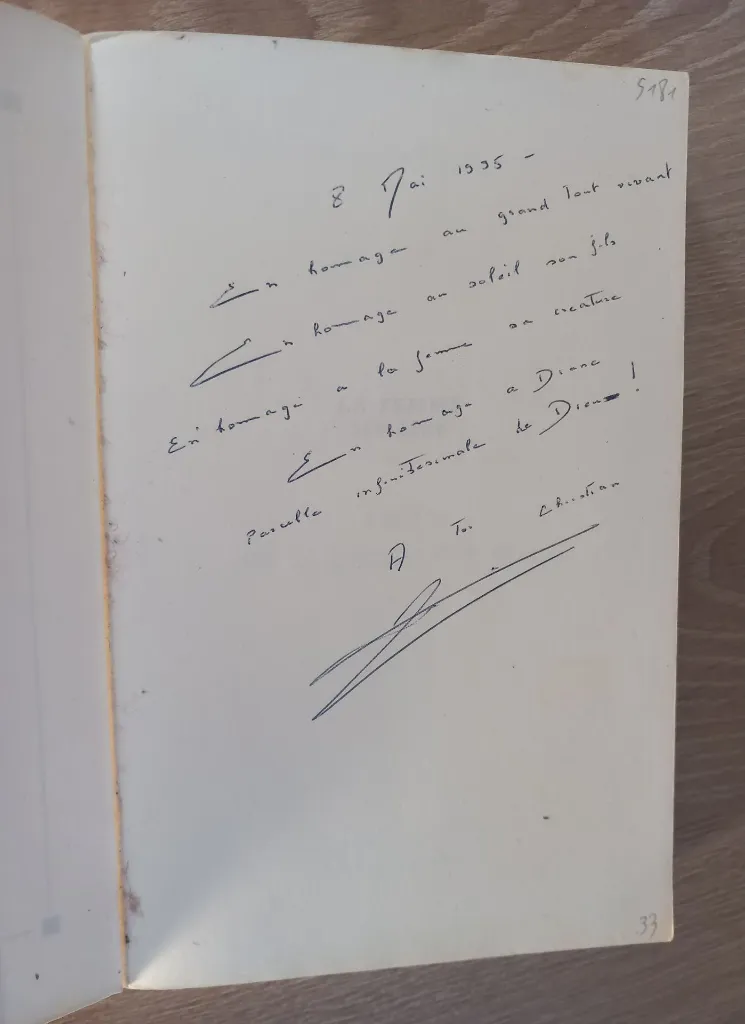 5181
8 Mai 1995 -
En homage au grand Tout vivant
En homage au soleil son fils
En homage a la femme sa creature
En homage a Diane
Parcelle infinitesimale de Dieu !
A Toi Christian
33